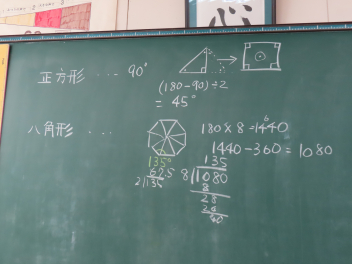 心
正方形 ... 90°
(180-90)÷2
= 45°
八角形 ...
180×8=1440
1440-360=1080
135°
67.5
2)135
135
8)1080
8
28
24
40